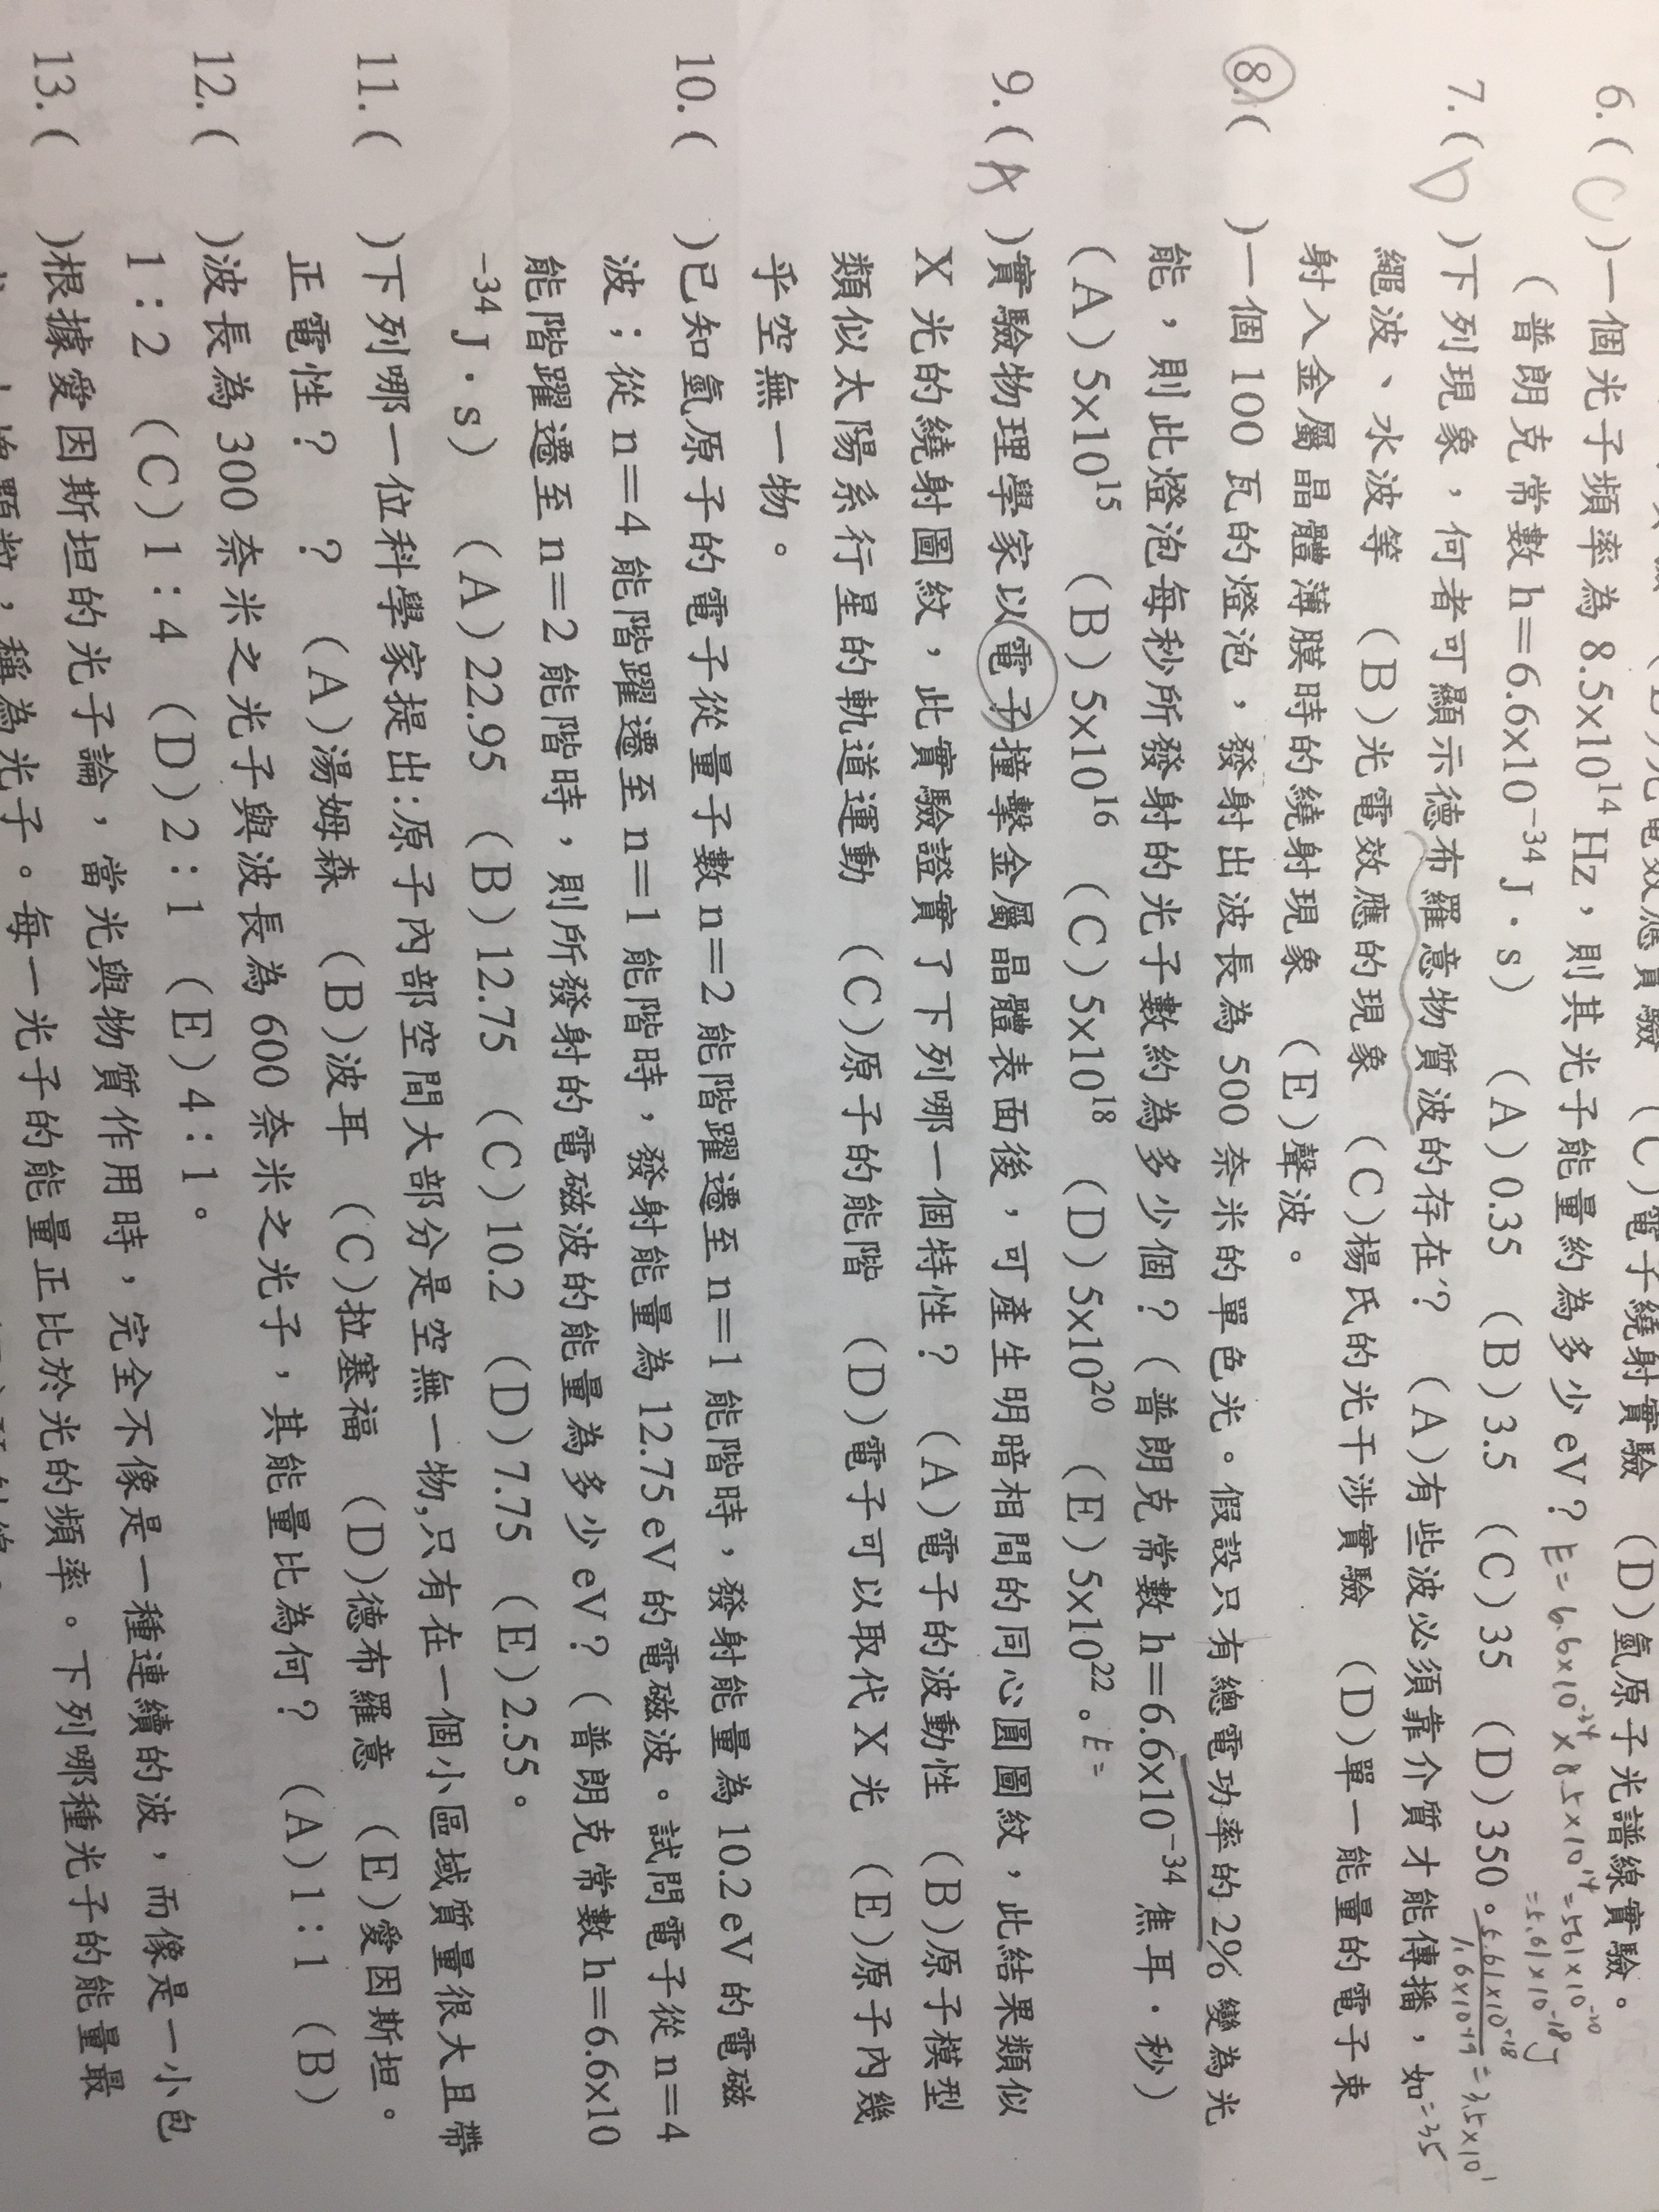 (C)電子繞射實驗 (D)氫原子光譜線實驗。
6.( C )一個光子頻率為 8.5x10¹⁴ Hz，則其光子能量約為多少 eV？ E= 6.6x10⁻³⁴ x 8.5 x 10¹⁴ = 561 x 10⁻²⁰
= 5.61 x 10⁻¹⁸ J
(普朗克常數 h＝6.6x10⁻³⁴ J · s) (A)0.35 (B)3.5 (C)35 (D)350。 5.61x10⁻¹⁸ / 1.6x10⁻¹⁹ = 3.5 x 10¹
= 35
7.( D )下列現象，何者可顯示德布羅意物質波的存在？ (A)有些波必須靠介質才能傳播，如
繩波、水波等 (B)光電效應的現象 (C)楊氏的光干涉實驗 (D)單一能量的電子束
射入金屬晶體薄膜時的繞射現象 (E)聲波。
8.( )一個 100 瓦的燈泡，發射出波長為 500 奈米的單色光。假設只有總電功率的 2% 變為光
能，則此燈泡每秒所發射的光子數約為多少個？(普朗克常數 h＝6.6x10⁻³⁴ 焦耳 · 秒)
(A)5x10¹⁵ (B)5x10¹⁶ (C)5x10¹⁸ (D)5x10²⁰ (E)5x10²²。 E=
9.( A )實驗物理學家以電子撞擊金屬晶體表面後，可產生明暗相間的同心圓圖紋，此結果類似
X 光的繞射圖紋，此實驗證實了下列哪一個特性？ (A)電子的波動性 (B)原子模型
類似太陽系行星的軌道運動 (C)原子的能階 (D)電子可以取代 X 光 (E)原子內幾
乎空無一物。
10.( )已知氫原子的電子從量子數 n＝2 能階躍遷至 n＝1 能階時，發射能量為 10.2 eV 的電磁
波；從 n＝4 能階躍遷至 n＝1 能階時，發射能量為 12.75 eV 的電磁波。試問電子從 n＝4
能階躍遷至 n＝2 能階時，則所發射的電磁波的能量為多少 eV？(普朗克常數 h＝6.6x10
⁻³⁴ J · s) (A)22.95 (B)12.75 (C)10.2 (D)7.75 (E)2.55。
11.( )下列哪一位科學家提出:原子內部空間大部分是空無一物,只有在一個小區域質量很大且帶
正電性？ ？ (A)湯姆森 (B)波耳 (C)拉塞福 (D)德布羅意 (E)愛因斯坦。
12.( )波長為 300 奈米之光子與波長為 600 奈米之光子，其能量比為何？ (A)1：1 (B)
1：2 (C)1：4 (D)2：1 (E)4：1。
13.( )根據愛因斯坦的光子論，當光與物質作用時，完全不像是一種連續的波，而像是一小包
顆粒，稱為光子。每一光子的能量正比於光的頻率。下列哪種光子的能量最